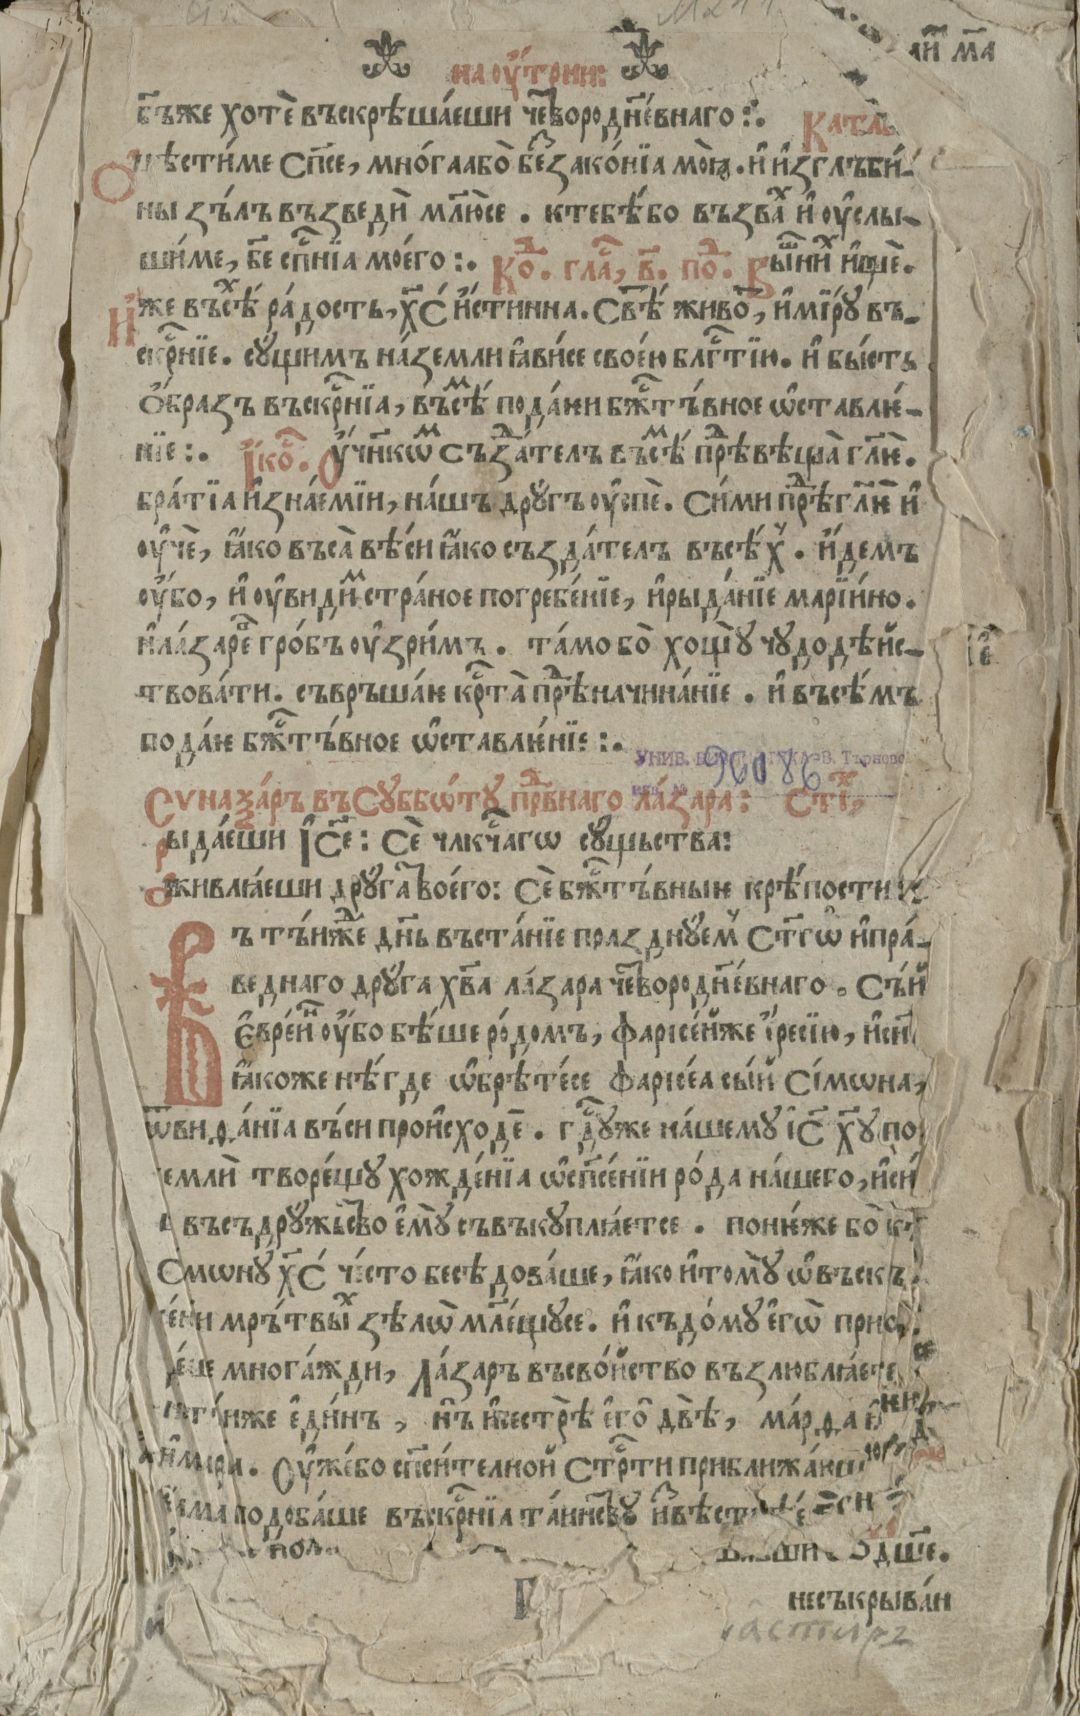 на оу҆́трни:
бъ҃же хотѐ въскрѣша́еши че҃вородн҃е́внаго :·
Кат
ѡ҆чѣсти́ме Сп҃се, мно́га а бо̀ без̾ако́нїа моꙗ̀. и҆ и҆зглъби-
ны зълъ възведѝ мл҃юсе. к тебѣ́ бо възвах и҆ оу҆слы-
ши́ме, бе҃ сп҃нїа моего :·
Ко. гла, в҃. по. Вышних и҆ще.
И҆же въсѣ́х ра́дость, хс҃ и҆́стинна. Свѣ́т живо, и҆ мі́ру въ-
скрн҃їе. су́щимъ на́земли ꙗ҆ви́се свое́ю блг҃тїю. и҆ бы́сть
О҆́бразъ въскрн҃їа, въсѣ́м пода́ꙗи бж҃тъ́вное ѡ҆ставлꙗ́-
нїе :·
І҆ко. Оу҆чн҃кѡм създа́телъ въсѣ́м прѣвѣща̀ гл҃ꙗ.
бра́тїа и҆ зна́емїи, на́шъ дру́гъ оу҆спѐ. Си́ми прѣгл҃ꙗ и҆
оу҆чѐ, ꙗ҆́ко въса̀ вѣ́си ꙗ҆́ко създа́телъ въсѣ́х. и҆́демъ
оу҆́бо, и҆ оу҆види́м стра́ное погребе́нїе, и҆ рыда́нїе марїи́но.
и҆ ла́заре гро́бъ оу҆зри́мъ. та́мо бо̀ хощу̀ чудодѣ́йс-
твова́ти. съвръша́ꙗ крⷭта̀ прѣначина́нїе. и҆ въсѣ́мъ
пода́ꙗ бж҃тъ́вное ѡ҆ставлꙗ́нїе :·
УНИВ. В. Търново
96086
Сѵнаѯа́ръ въ Суббѡ́ту првнаго ла́зара: Стїх,
Рыда́еши І҆се҃: Сѐ члкч҃агѡ су́щьства:
Ѡ҆живлꙗ́еши друга твоего: Сѐ бж҃тъ́вныꙗ крѣ́пости:
Въ тъ́иже дн҃ь въста́нїе празднуем Ст҃гѡ и҆ пра́-
веднаго дру́га хв҃а ла́зара че҃вородн҃е́внаго. Съ́й
Е҆вре́ин оу҆бо бѣ́ше ро́домъ, фарїсе́йже і҆ресїю, и҆ сн҃
ꙗ҆́коже нѣ́где ѡ҆брѣ́тесе фарїсе́а сы́й Сі́мѡна,
ѿ виѳа́нїа въ́си происходе. гдⷭ҇уже на́шему і҆с҃ хр҃у по
земли̇ творе́щу хожде́нїа ѡ҆ сп҃се́нїи ро́да на́шего, и҆ си́
въ съдружьство е҆му съвъкуплꙗ́етсе. понꙗ́же бо̀
Сімѡну хс҃ че́сто бесѣ́дова́ше, ꙗ҆́ко и҆ тому̀ ѡ҆ въскъ
се́ни мръ́твых зѣлѡ̀ мл҃е́щусе. и҆ къ до́му е҆гѡ̀ прихо
де́ще многа́жди, Ла́заръ въ сво́йство възлюблꙗ́етсе
и҆же е҆ди́нъ, нъ и҆ сестрѣ̀ е҆го̀ двѣ, ма́рѳа и҆
и҆ марі́а. Оу҆же́ бо сп҃си́телной Стрⷭ҇ти приближа́ꙗ
подоба́ше въскрн҃їа та́инству и҆звѣст
вавши дш҃е.
Г
несъкрыва́ꙗ